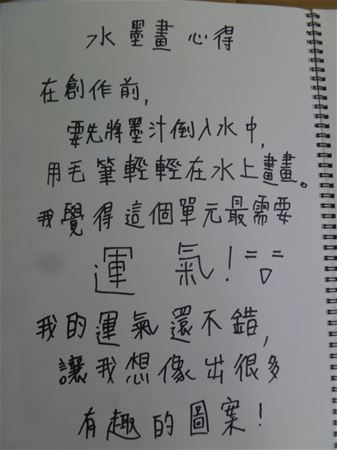 水墨畫心得
在創作前,
要先將墨汁倒入水中,
用毛筆輕輕在水上畫畫。
我覺得這個單元最需要
運氣!
我的運氣還不錯,
讓我想像出很多
有趣的圖案!